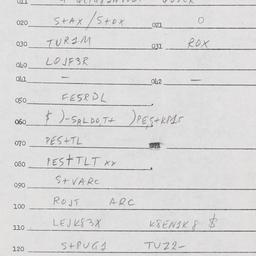 020 S+AX/S+DX 021 O
030 TUR1M 031 ROX
040 LOJF3R
041 — 042 —
050 FESRDL
060 $ )-SALDOT+ )PES+KP1T
070 PES+TL
080 PES+TLT XX
090 S+VARC
100 ROJT ARC
110 LEJK83X K8EN1K8 $
120 S+PUG1 TUZ2-